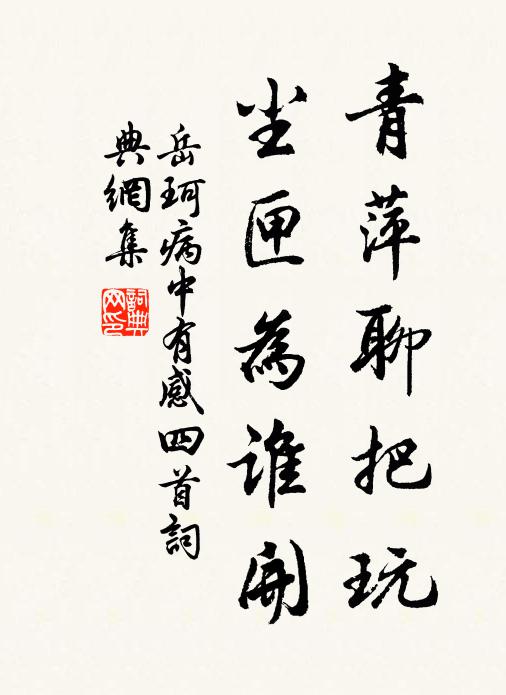 青萍聊把玩
尘匣為誰開
岳珂病中有感四首詞
典網集
詞典網印